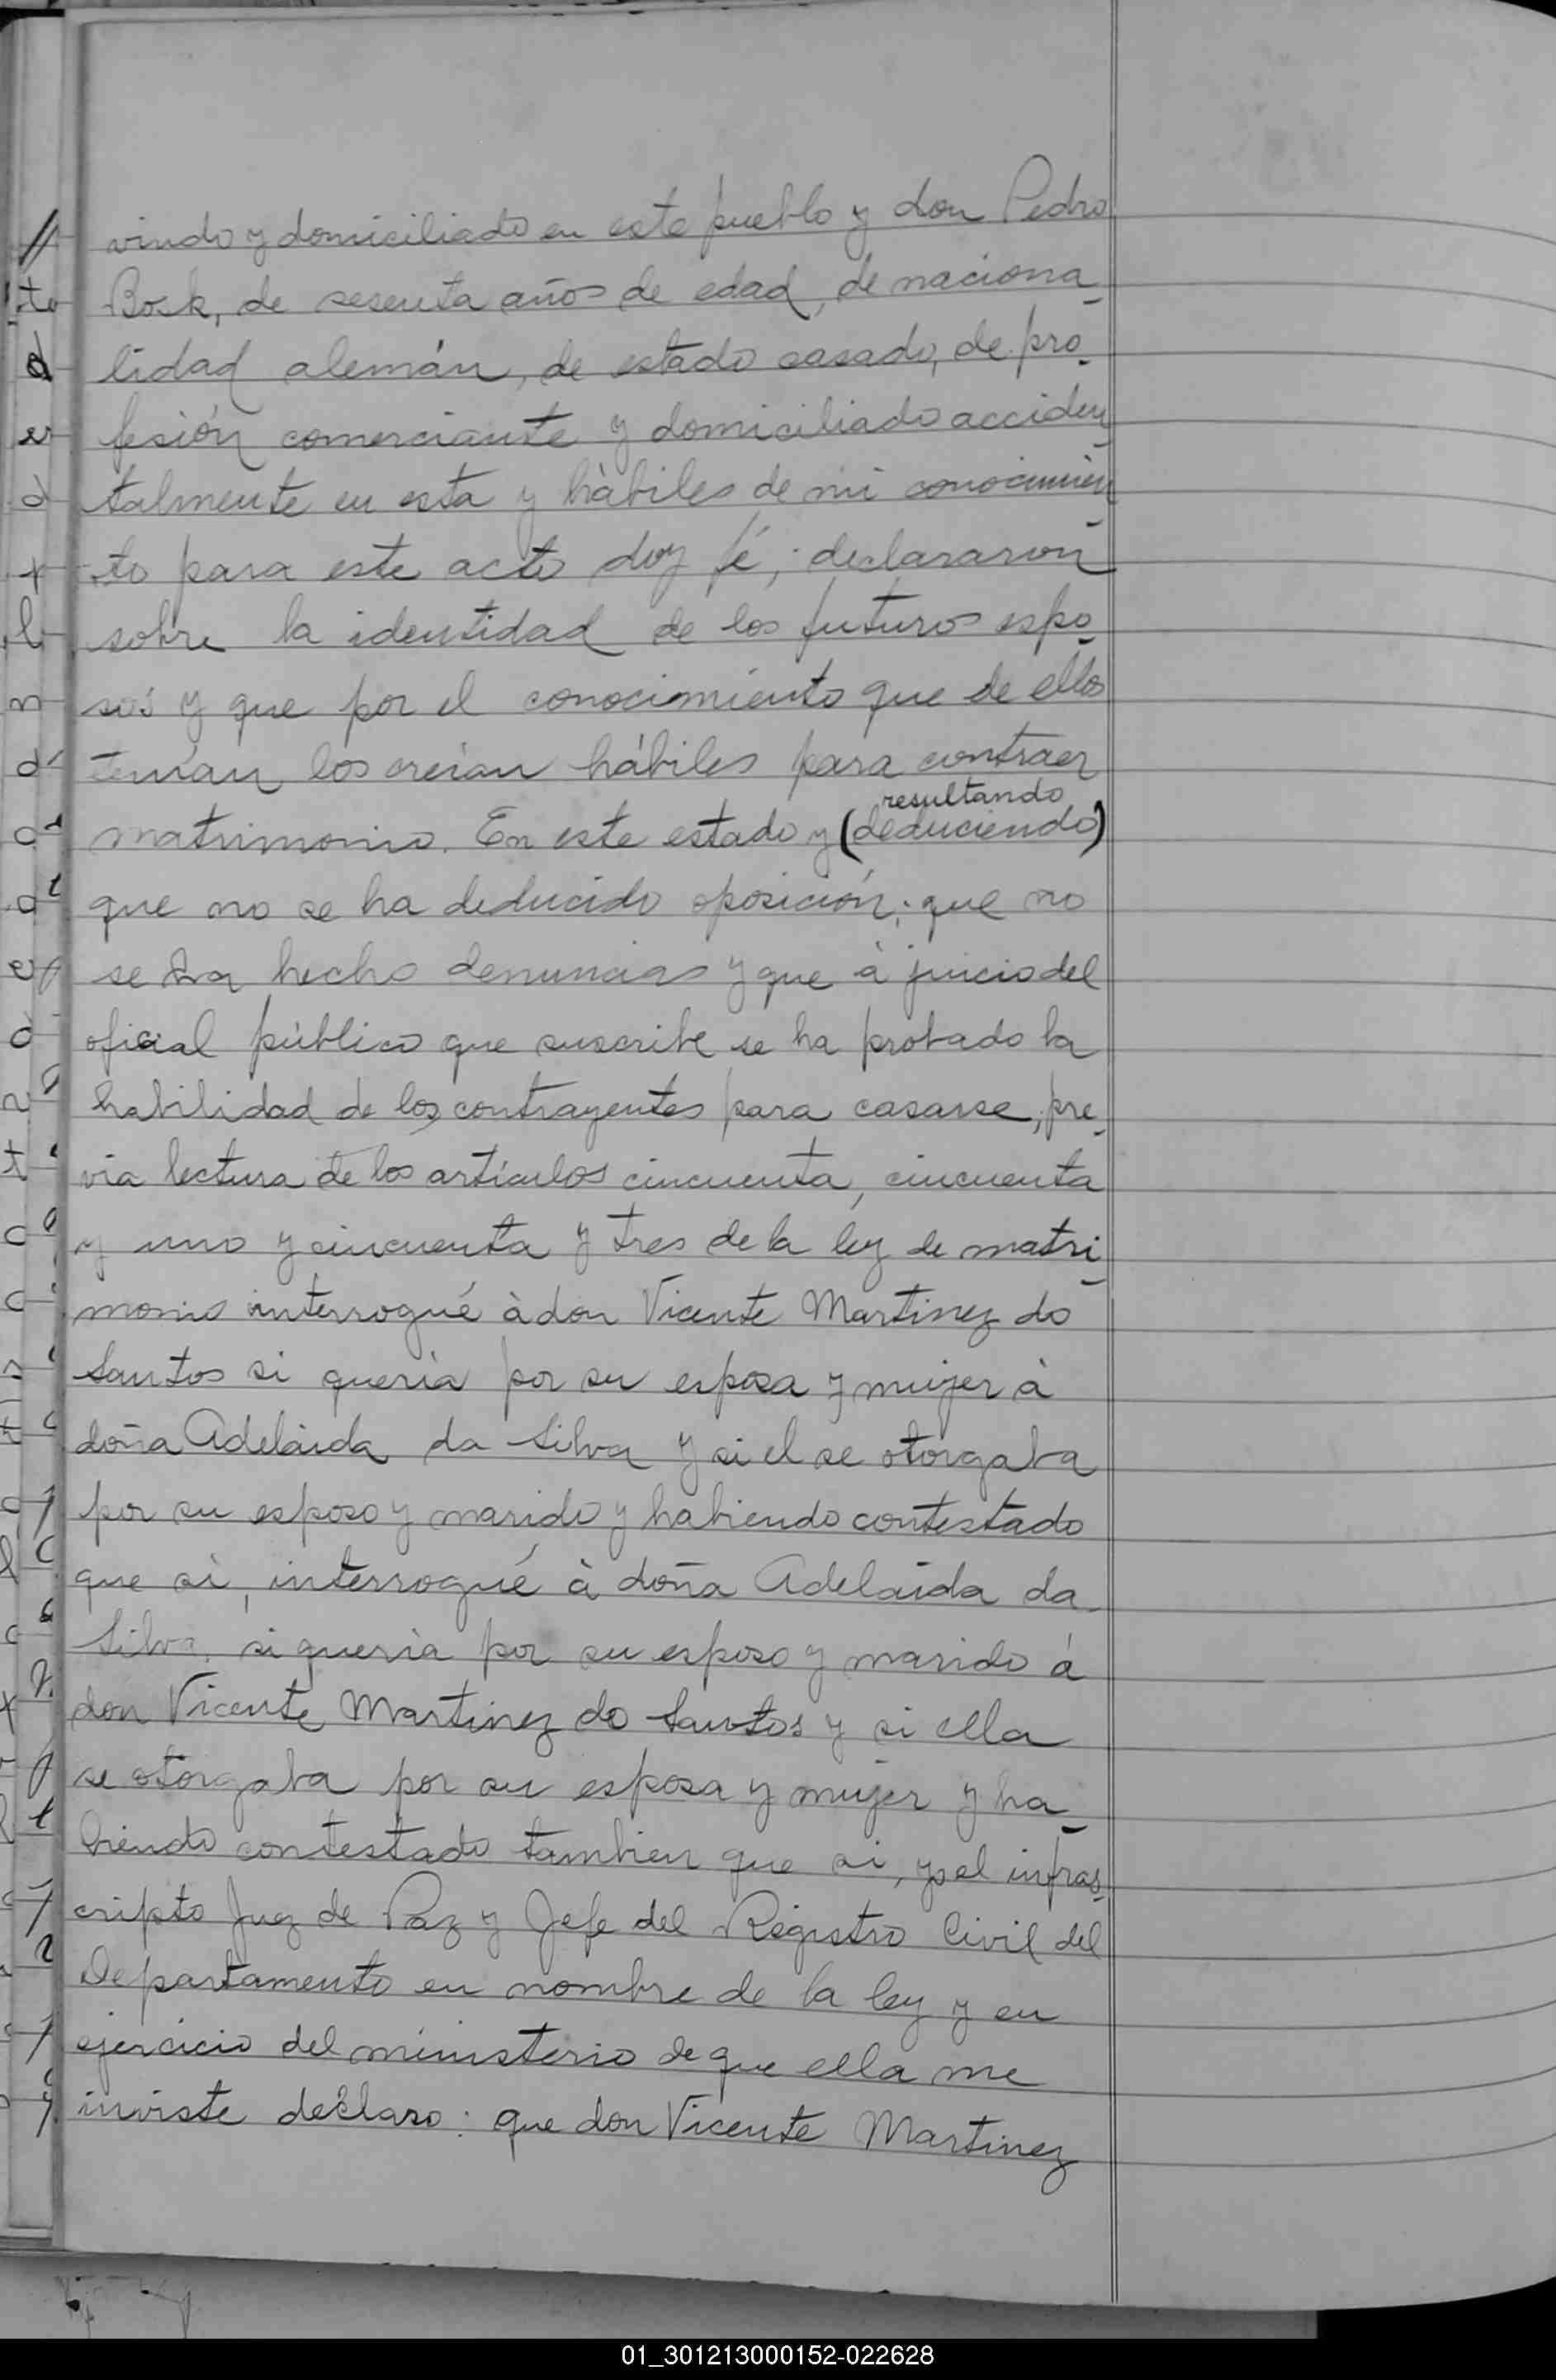 viudo y domiciliado en este pueblo y don Pedro
Bosk, de sesenta años de edad, de naciona-
lidad alemán, de estado casado, de pro-
fesión comerciante y domiciliado acciden-
talmente en esta y hàbiles de mi conocimien-
to para este acto doy fé; declararon
sobre la identidad de los futuros espo-
sos y que por el conocimiento que de ellos
tenían los creían hábiles para contraer
resultando
matrimonio. En este estado y (deduciendo)
que no se ha deducido oposición; que no
se ha hecho denuncias y que à juicio del
oficial público que suscribe se ha probado la
habilidad de los contrayentes para casarse, pre-
via lectura de los artículos cincuenta, cincuenta
y uno y cincuenta y tres de la ley de matri-
monio interrogué à don Vicente Martinez do
Santos si quería por su esposa y mujer à
doña Adelaida da Silva y si el se otorgaba
por su esposo y marido y habiendo contestado
que sì, interrogué à doña Adelaida da
Silva si queria por su esposo y marido á
don Vicente Martinez do Santos y si ella
se otorgaba por su esposa y mujer y ha-
biendo contestado tambien que si, yo el infras-
cripto Juez de Paz y Jefe del Registro Civil del
Departamento en nombre de la ley y en
ejercicio del ministerio de que ella me
inviste declaro: que don Vicente Martinez
01_301213000152-022628